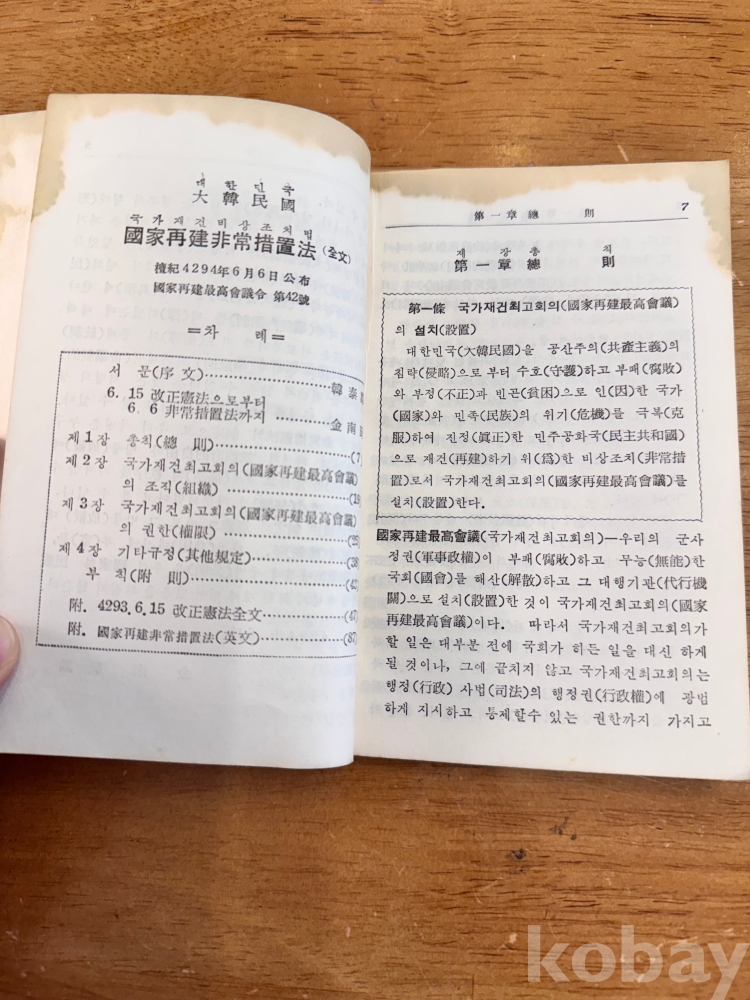 대한민국
大韓民國
국가재건비상조치법
國家再建非常措置法(全文)
檀紀4294年6月6日公布
國家再建最高會議令 第42號
=차 례=
서 문(序 文)…韓泰
6. 15 改正憲法으로부터
6. 6 非常措置法까지…金南
제1장 총칙(總 則)…(7)
제2장 국가재건최고회의(國家再建最高會議)
의 조직(組織)…(19)
제3장 국가재건최고회의(國家再建最高會議)
의 권한(權限)…(25)
제4장 기타규정(其他規定)…(38)
부 칙(附 則)…(42)
附. 4293.6.15 改正憲法全文…(47)
附. 國家再建非常措置法(英文)…(87)
第一章 總 則 7
제 장 총 칙
第一章 總 則
第一條 국가재건최고회의(國家再建最高會議)
의 설치(設置)
대한민국(大韓民國)을 공산주의(共產主義)의
침략(侵略)으로 부터 수호(守護)하고 부패(腐敗)
와 부정(不正)과 빈곤(貧困)으로 인(因)한 국가
(國家)와 민족(民族)의 위기(危機)를 극복(克
服)하여 진정(眞正)한 민주공화국(民主共和國)
으로 재건(再建)하기 위(爲)한 비상조치(非常措
置)로서 국가재건최고회의(國家再建最高會議)를
설치(設置)한다.
國家再建最高會議(국가재건최고회의)—우리의 군사
정권(軍事政權)이 부패(腐敗)하고 무능(無能)한
국회(國會)를 해산(解散)하고 그 대행기관(代行機
關)으로 설치(設置)한 것이 국가재건최고회의(國家
再建最高會議)이다. 따라서 국가재건최고회의가
할 일은 대부분 전에 국회가 하든 일을 대신 하게
될 것이나, 그에 끝치지 않고 국가재건최고회의는
행정(行政) 사법(司法)의 행정권(行政權)에 광범
하게 지시하고 통제할수 있는 권한까지 가지고
kobay